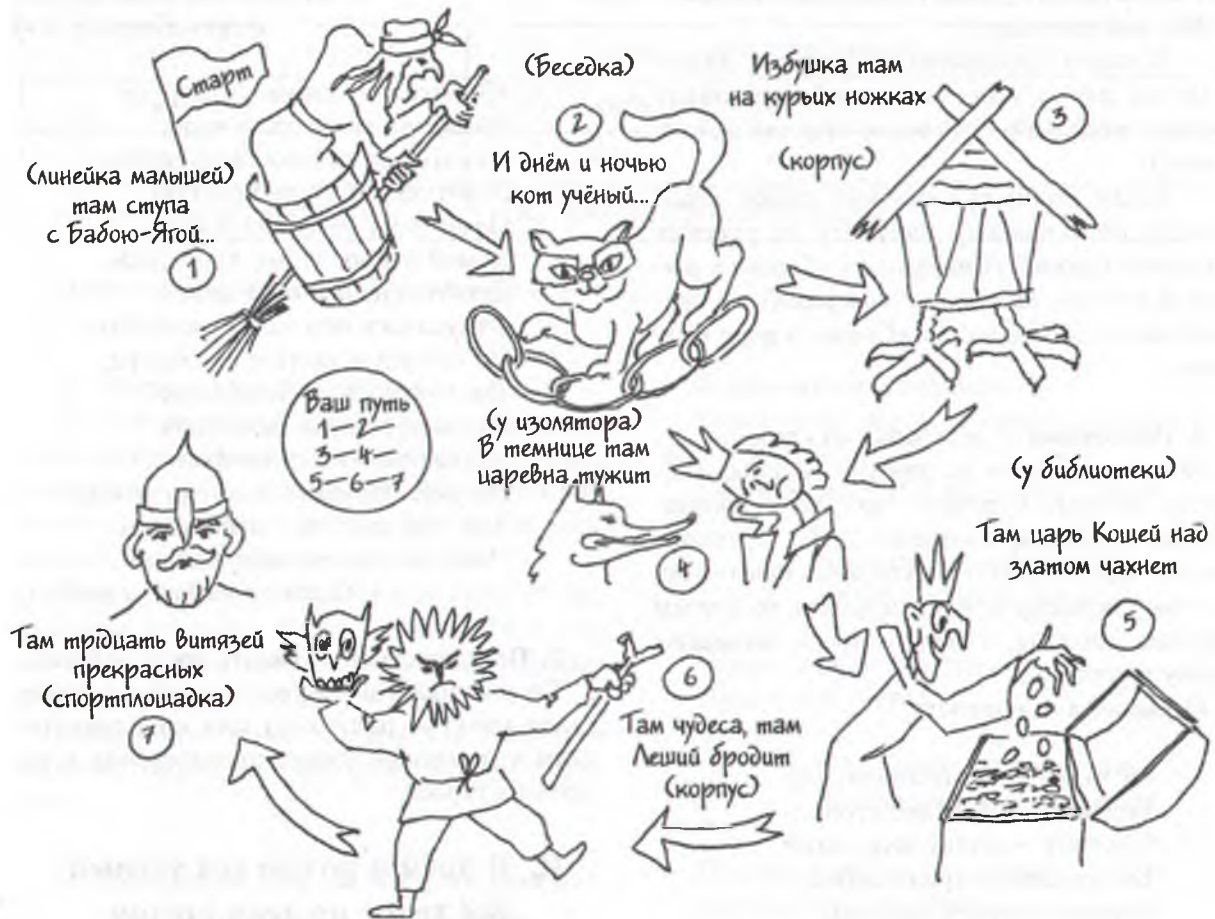 Старт
(линейка малышей)
там ступа
с Бабою-Ягой...
1
(Беседка)
2
И днём и ночью
кот учёный...
Избушка там
на курьих ножках
3
(корпус)
Ваш путь
1-2
3-4
5-6-7
(у изолятора)
В темнице там
царевна тужит
4
(у библиотеки)
Там царь Кощей над
златом чахнет
5
6
Там чудеса, там
Леший бродит
(корпус)
Там тридцать витязей
прекрасных
(спортплощадка)
7